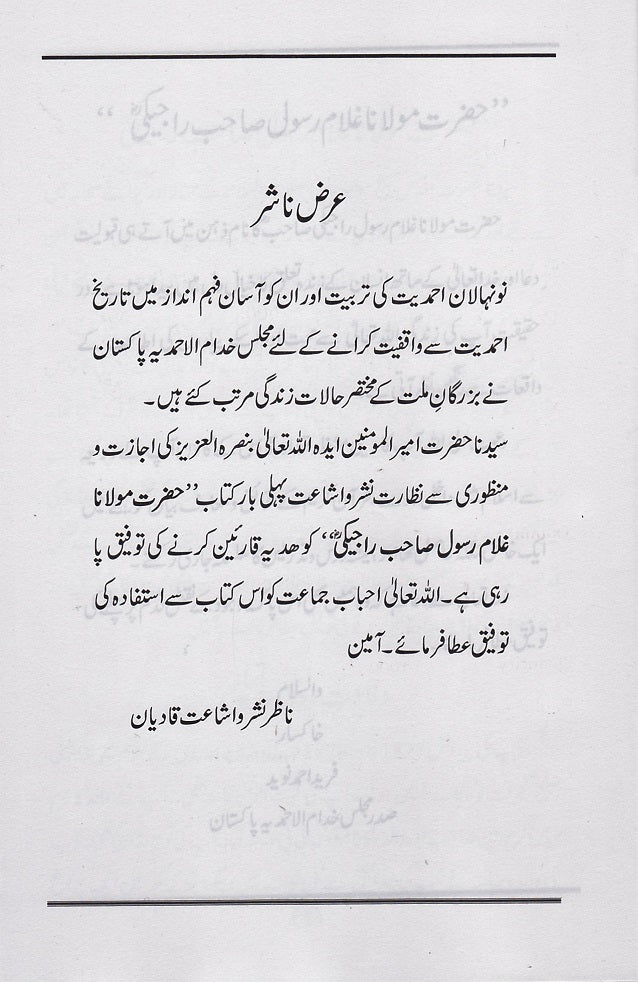 عرض ناشر
نونہالان احمدیت کی تربیت اور ان کو آسان فہم انداز میں تاریخ
احمدیت سے واقفیت کرانے کے لئے مجلس خدام الاحمدیہ پاکستان
نے بزرگانِ ملت کے مختصر حالات زندگی مرتب کئے ہیں۔
سیدنا حضرت امیر المومنین ایدہ اللہ تعالیٰ بنصرہ العزیز کی اجازت و
منظوری سے نظارت نشر و اشاعت پہلی بار کتاب ’’حضرت مولانا
غلام رسول صاحب راجیکیؓ‘‘ کو ھدیہ قارئین کرنے کی توفیق پا
رہی ہے۔ اللہ تعالیٰ احباب جماعت کو اس کتاب سے استفادہ کی
توفیق عطا فرمائے۔ آمین
ناظر نشر و اشاعت قادیان